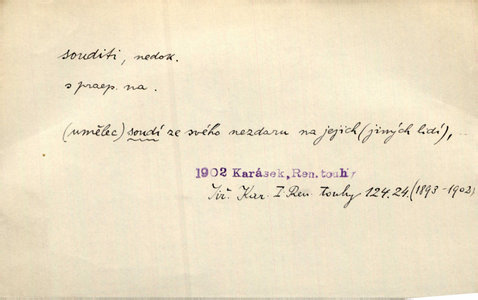 souditi, nedok.
s praep. na.
(umělec) soudí ze svého nezdaru na jejich (jiných lidí), ..
1902 Karásek, Ren. touhy
Jiř. Kar. I Ren. touhy 124.24. (1893-1902)